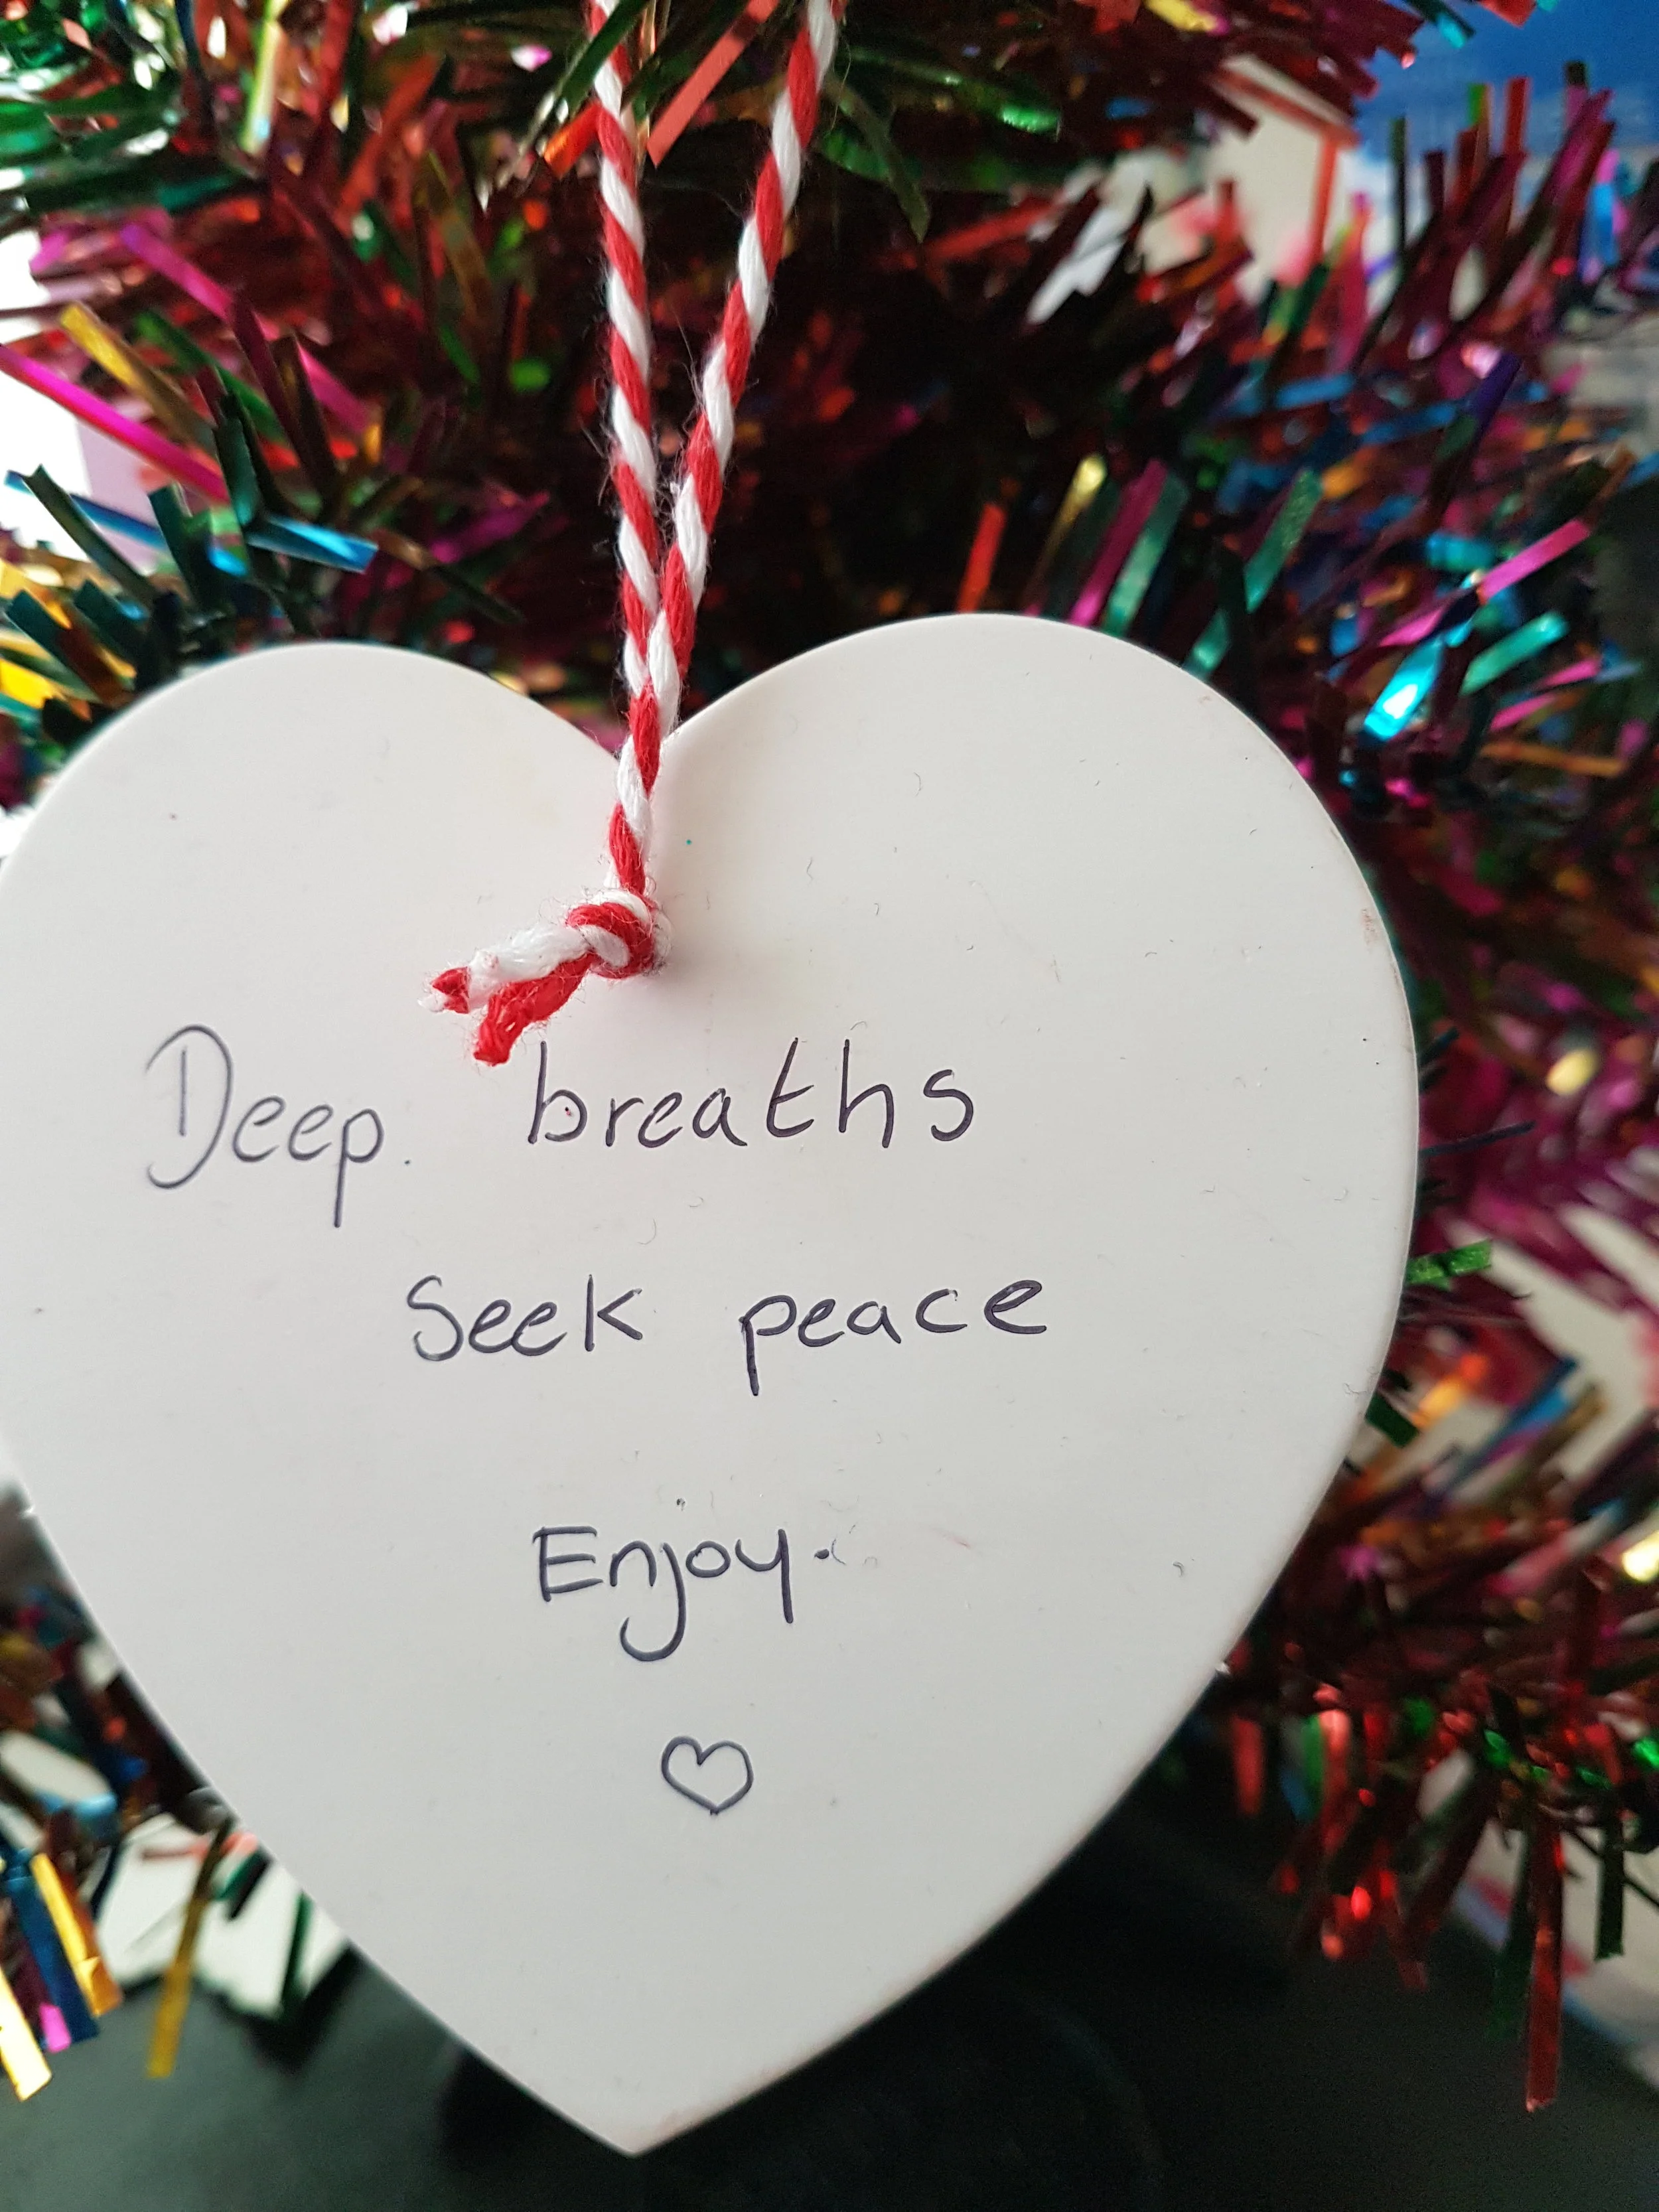 Deep. breaths
Seek peace
Enjoy.
♡